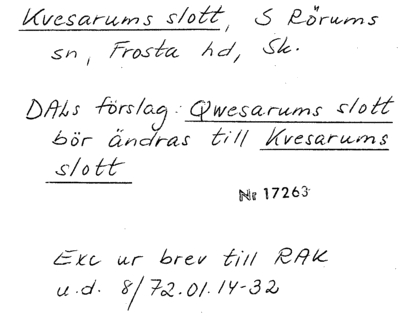 Kvesarums slott, S Rörums
sn, Frosta hd, Sk.
DALs förslag: Qwesarums slott
bör ändras till Kvesarums
slott
Nr 17263
Exc ur brev till RAK
u.d. 8/72.01.14-32